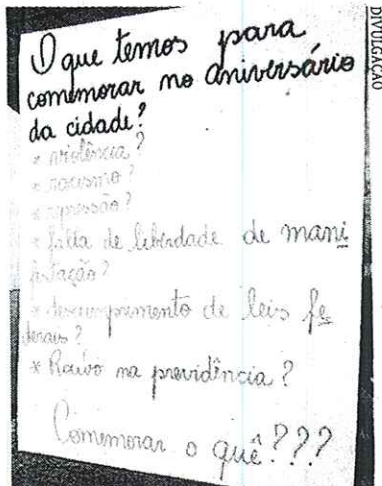 O que temos para
comemorar no aniversário
da cidade?
* violência?
* racismo?
* repressão?
* falta de liberdade de mani
festação?
* descumprimento de leis fe
derais?
* Roubo na previdência?
Comemorar o quê???
DIVULGAÇÃO